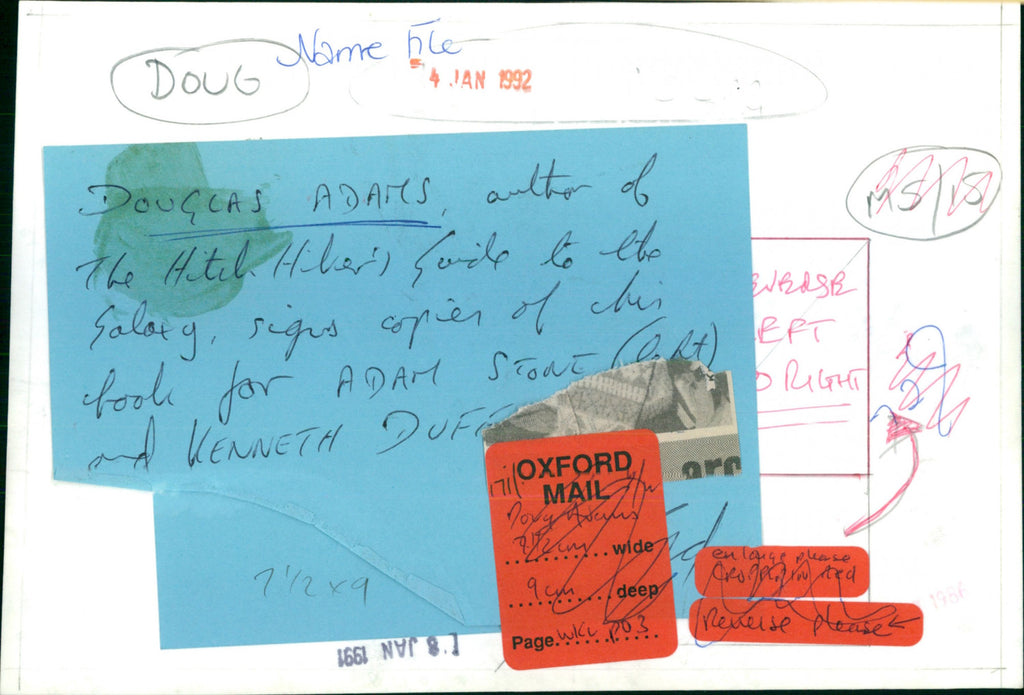 Name File
DOUG
4 JAN 1992
MS/IS
DOUGLAS ADAMS, author of
The Hitch Hiker's Guide to the
Galaxy, signs copies of his
book for ADAM STONE (left)
and KENNETH DUFF
EVERSE
EFT
O RIGHT
arc
OXFORD
MAIL
Doug Adams
7 1/2 cm wide
9 cm deep
Page WKE P03
7 1/2 x 9
enlarge please
Crop in red
Reverse please
18 JAN 1991